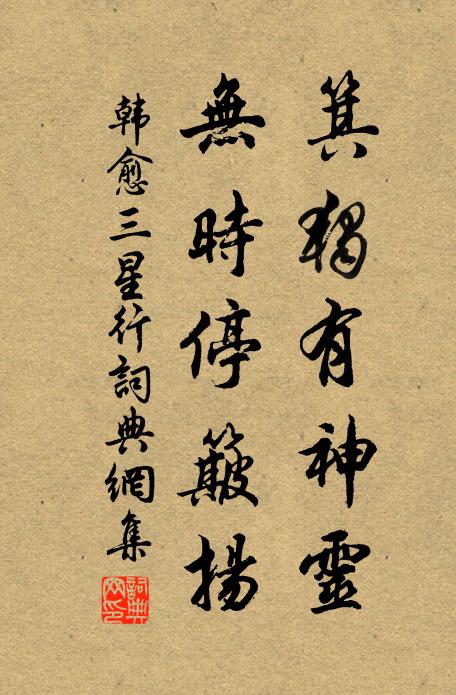 箕獨有神靈
無時停簸揚
韩愈三星行詞典網集
詞典网印